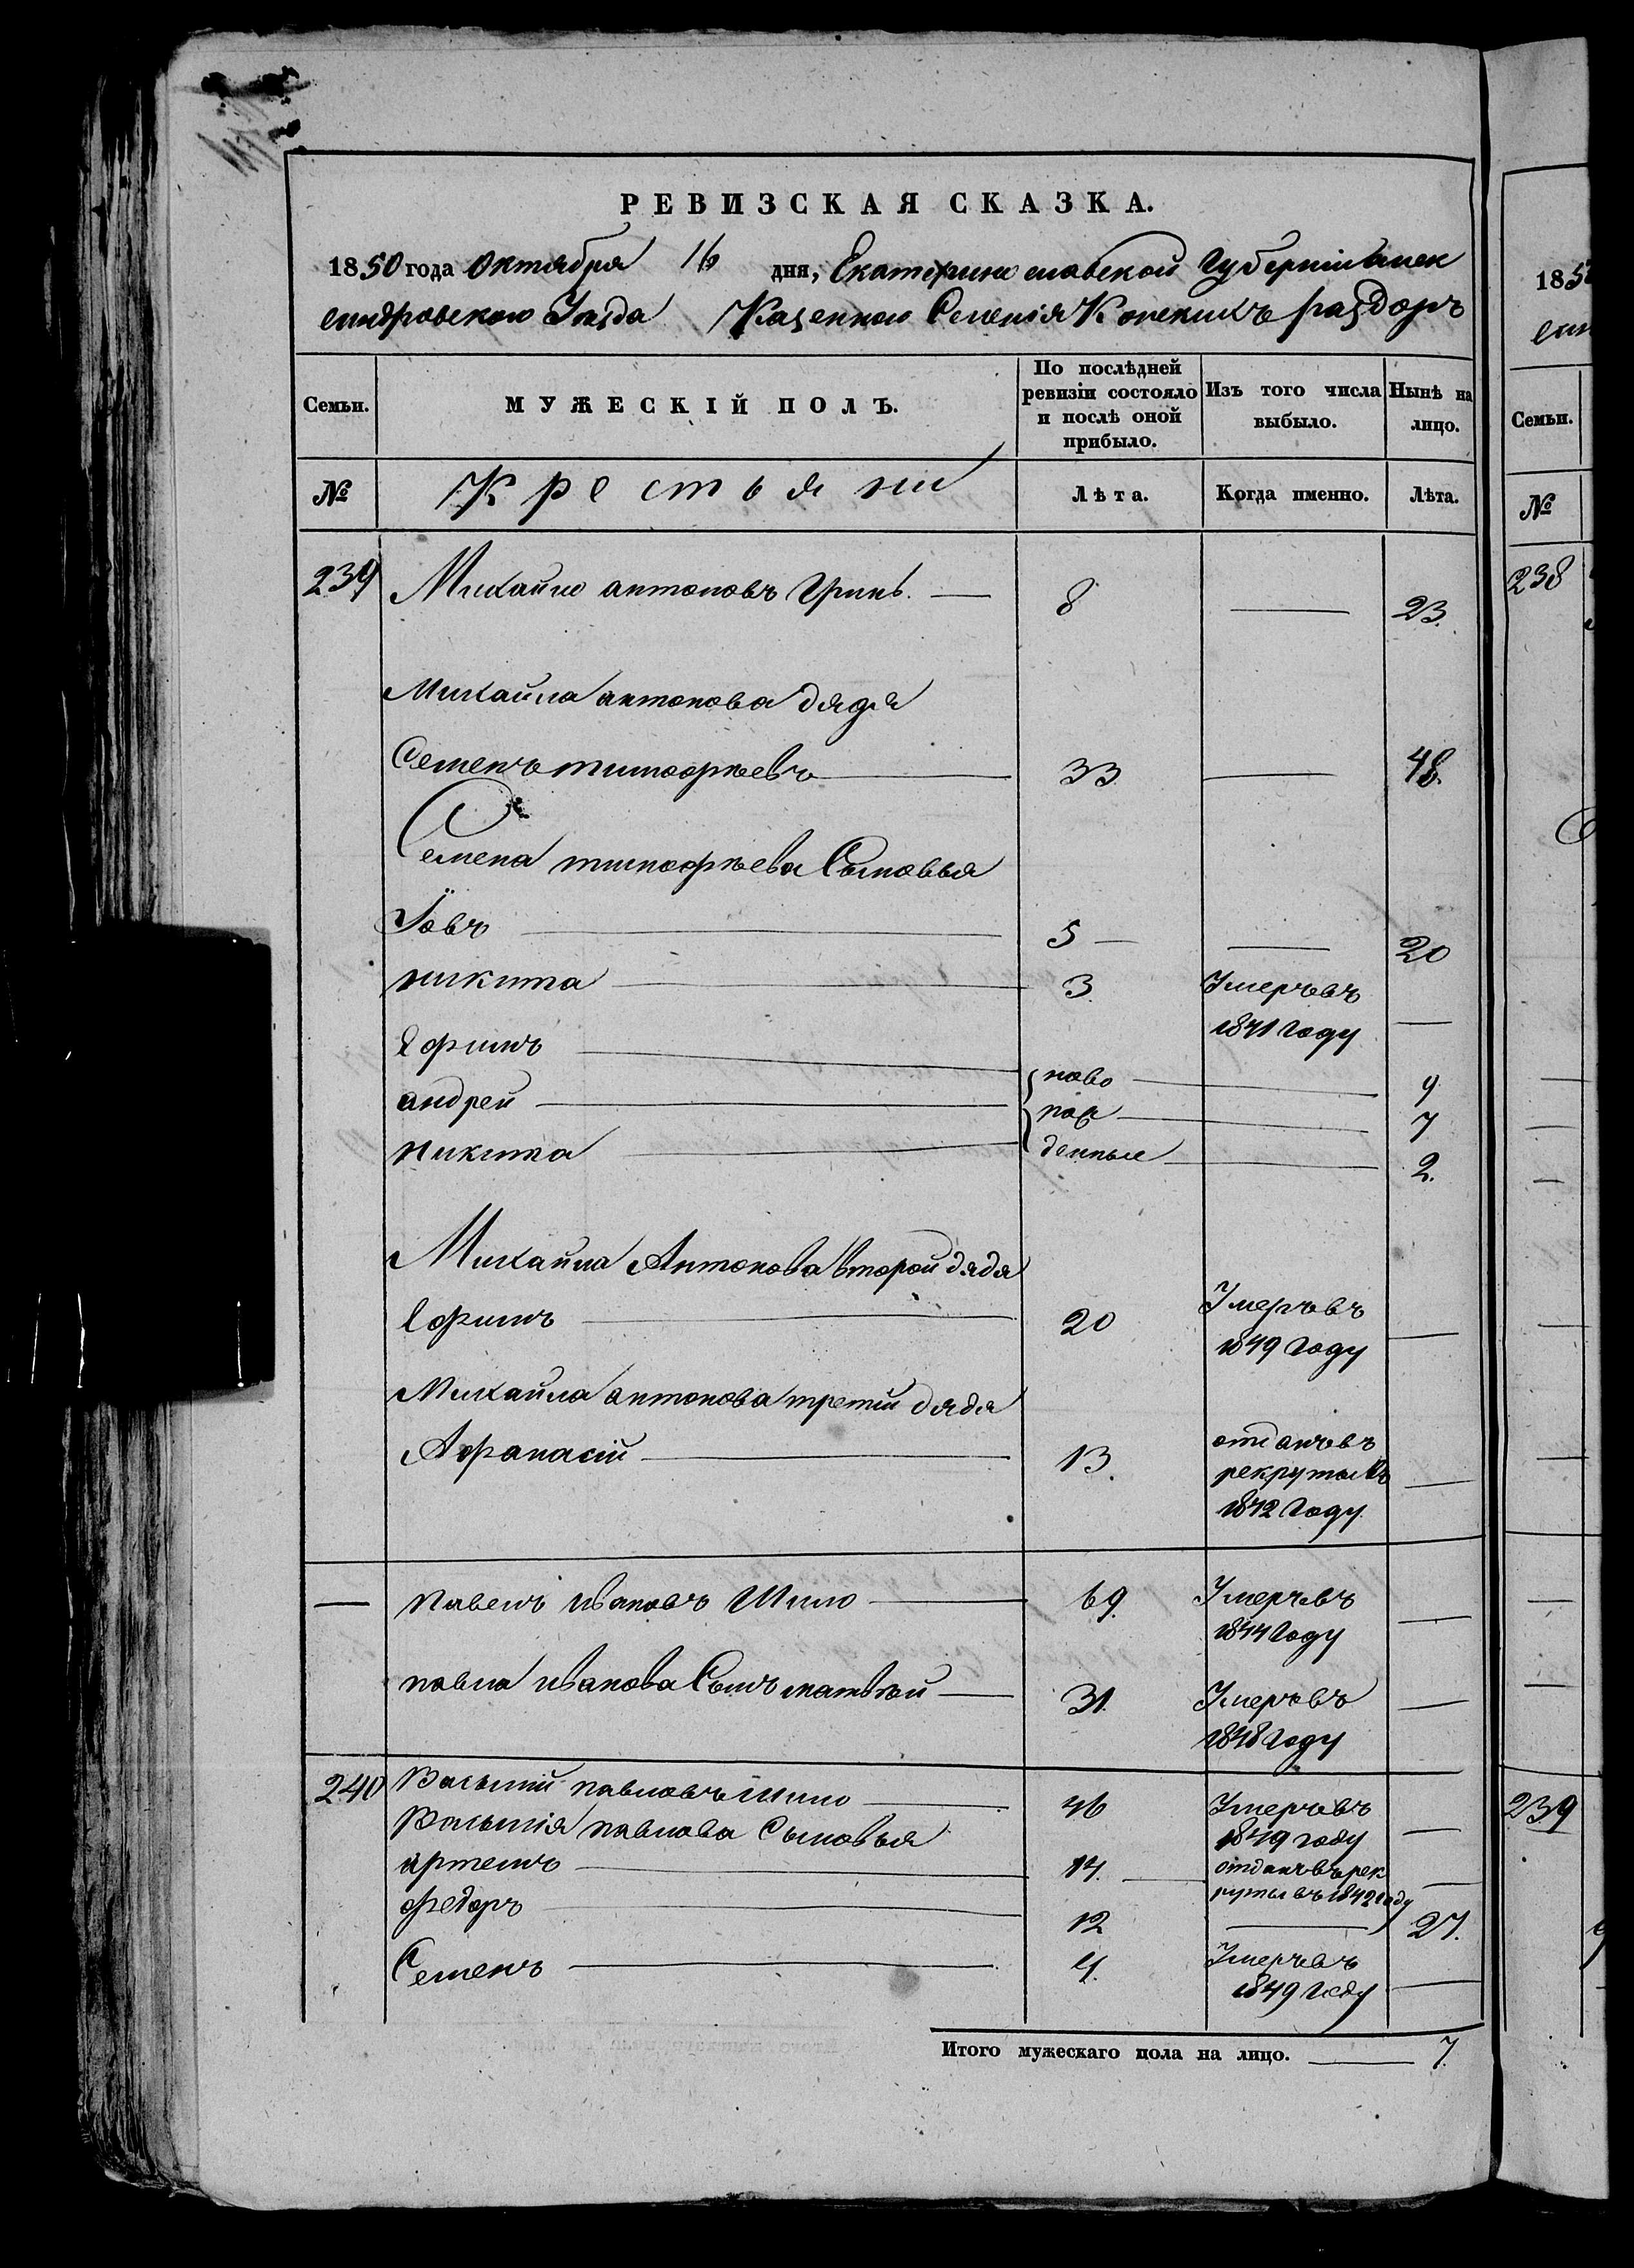 РЕВИЗСКАЯ СКАЗКА.
1850 года Октября 16 дня, Екатеринославской Губерніи Алек
сандровскаго Уѣзда Казеннаго Селенія Конскихъ раздоръ
Семьи. МУЖЕСКІЙ ПОЛЪ. По послѣдней ревизіи состояло и послѣ оной прибыло. Изъ того числа выбыло. Нынѣ на лицо.
№ Крестьяни Лѣта. Когда именно. Лѣта.
239 Михайло антоновъ Гринь. — 8 — 23.
Михайла антонова дядя
Семенъ тимофѣевъ — 33 — 48.
Семена тимофѣева Сыновья
Їовъ — 5 — — 20
никита — 3. Умеръ въ
1841 Году —
Ефимъ — ново — 9
андрей — рож — 7
никита — денные — 2.
Михайла Антонова второй дядя
Ефимъ — 20 Умеръ въ
1849 Году —
Михайла антонова третій дядя
Афанасій — 13. отданъ въ
рекруты въ —
1842 Году
— павелъ ивановъ Шило — 69. Умеръ въ
1844 Году —
павла иванова Сынъ матвѣй — 31. Умеръ въ —
1848 Году
240 Василій павловъ Шило — 46 Умеръ въ
1849 году —
Василія павлова Сыновья
артемъ — 14. — отданъ въ рек
руты въ 1842 году —
федоръ — 12 — 27.
Семенъ — 4. Умеръ въ
1849 Году —
Итого мужескаго пола на лицо. — 7.
185
Семьи.
№
238
239